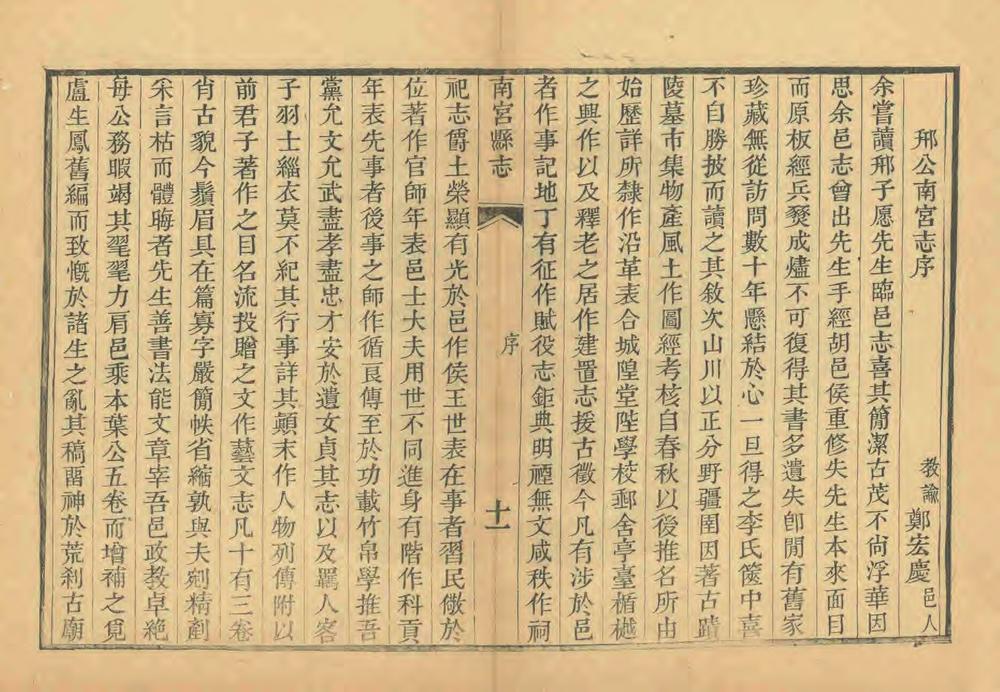 邢公南宮志序
教諭鄭宏慶邑人
余嘗讀邢子愿先生臨邑志喜其簡潔古茂不尙浮華因
思余邑志曾出先生手經胡邑侯重修失先生本來面目
而原板經兵燹成燼不可復得其書多遺失卽閒有舊家
珍藏無從訪問數十年懸結於心一旦得之李氏篋中喜
不自勝披而讀之其敘次山川以正分野疆圉因著古蹟
陵墓市集物產風土作圖經考核自春秋以後推名所由
始歷詳所隸作沿革表合城隍堂陛學校郵舍亭臺楯樾
之興作以及釋老之居作建置志援古徵今凡有涉於邑
者作事記地丁有征作賦役志鉅典明禋無文咸秩作祠
南宮縣志
序
十一
祀志爵土榮顯有光於邑作侯王世表在事者習民儆於
位著作官師年表邑士大夫用世不同進身有階作科貢
年表先事者後事之師作循良傳至於功載竹帛學推吾
黨允文允武盡孝盡忠才安於遺女貞其志以及羈人客
子羽士緇衣莫不紀其行事詳其顛末作人物列傳附以
前君子著作之目名流投贈之文作藝文志凡十有三卷
肖古貌今鬚眉具在篇寡字嚴簡帙省縮孰與夫剜精劃
采言枯而體晦者先生善書法能文章宰吾邑政教卓絕
每公務暇竭其毣毣力肩邑乘本葉公五卷而增補之覓
盧生鳳舊編而致慨於諸生之亂其稿畱神於荒刹古廟